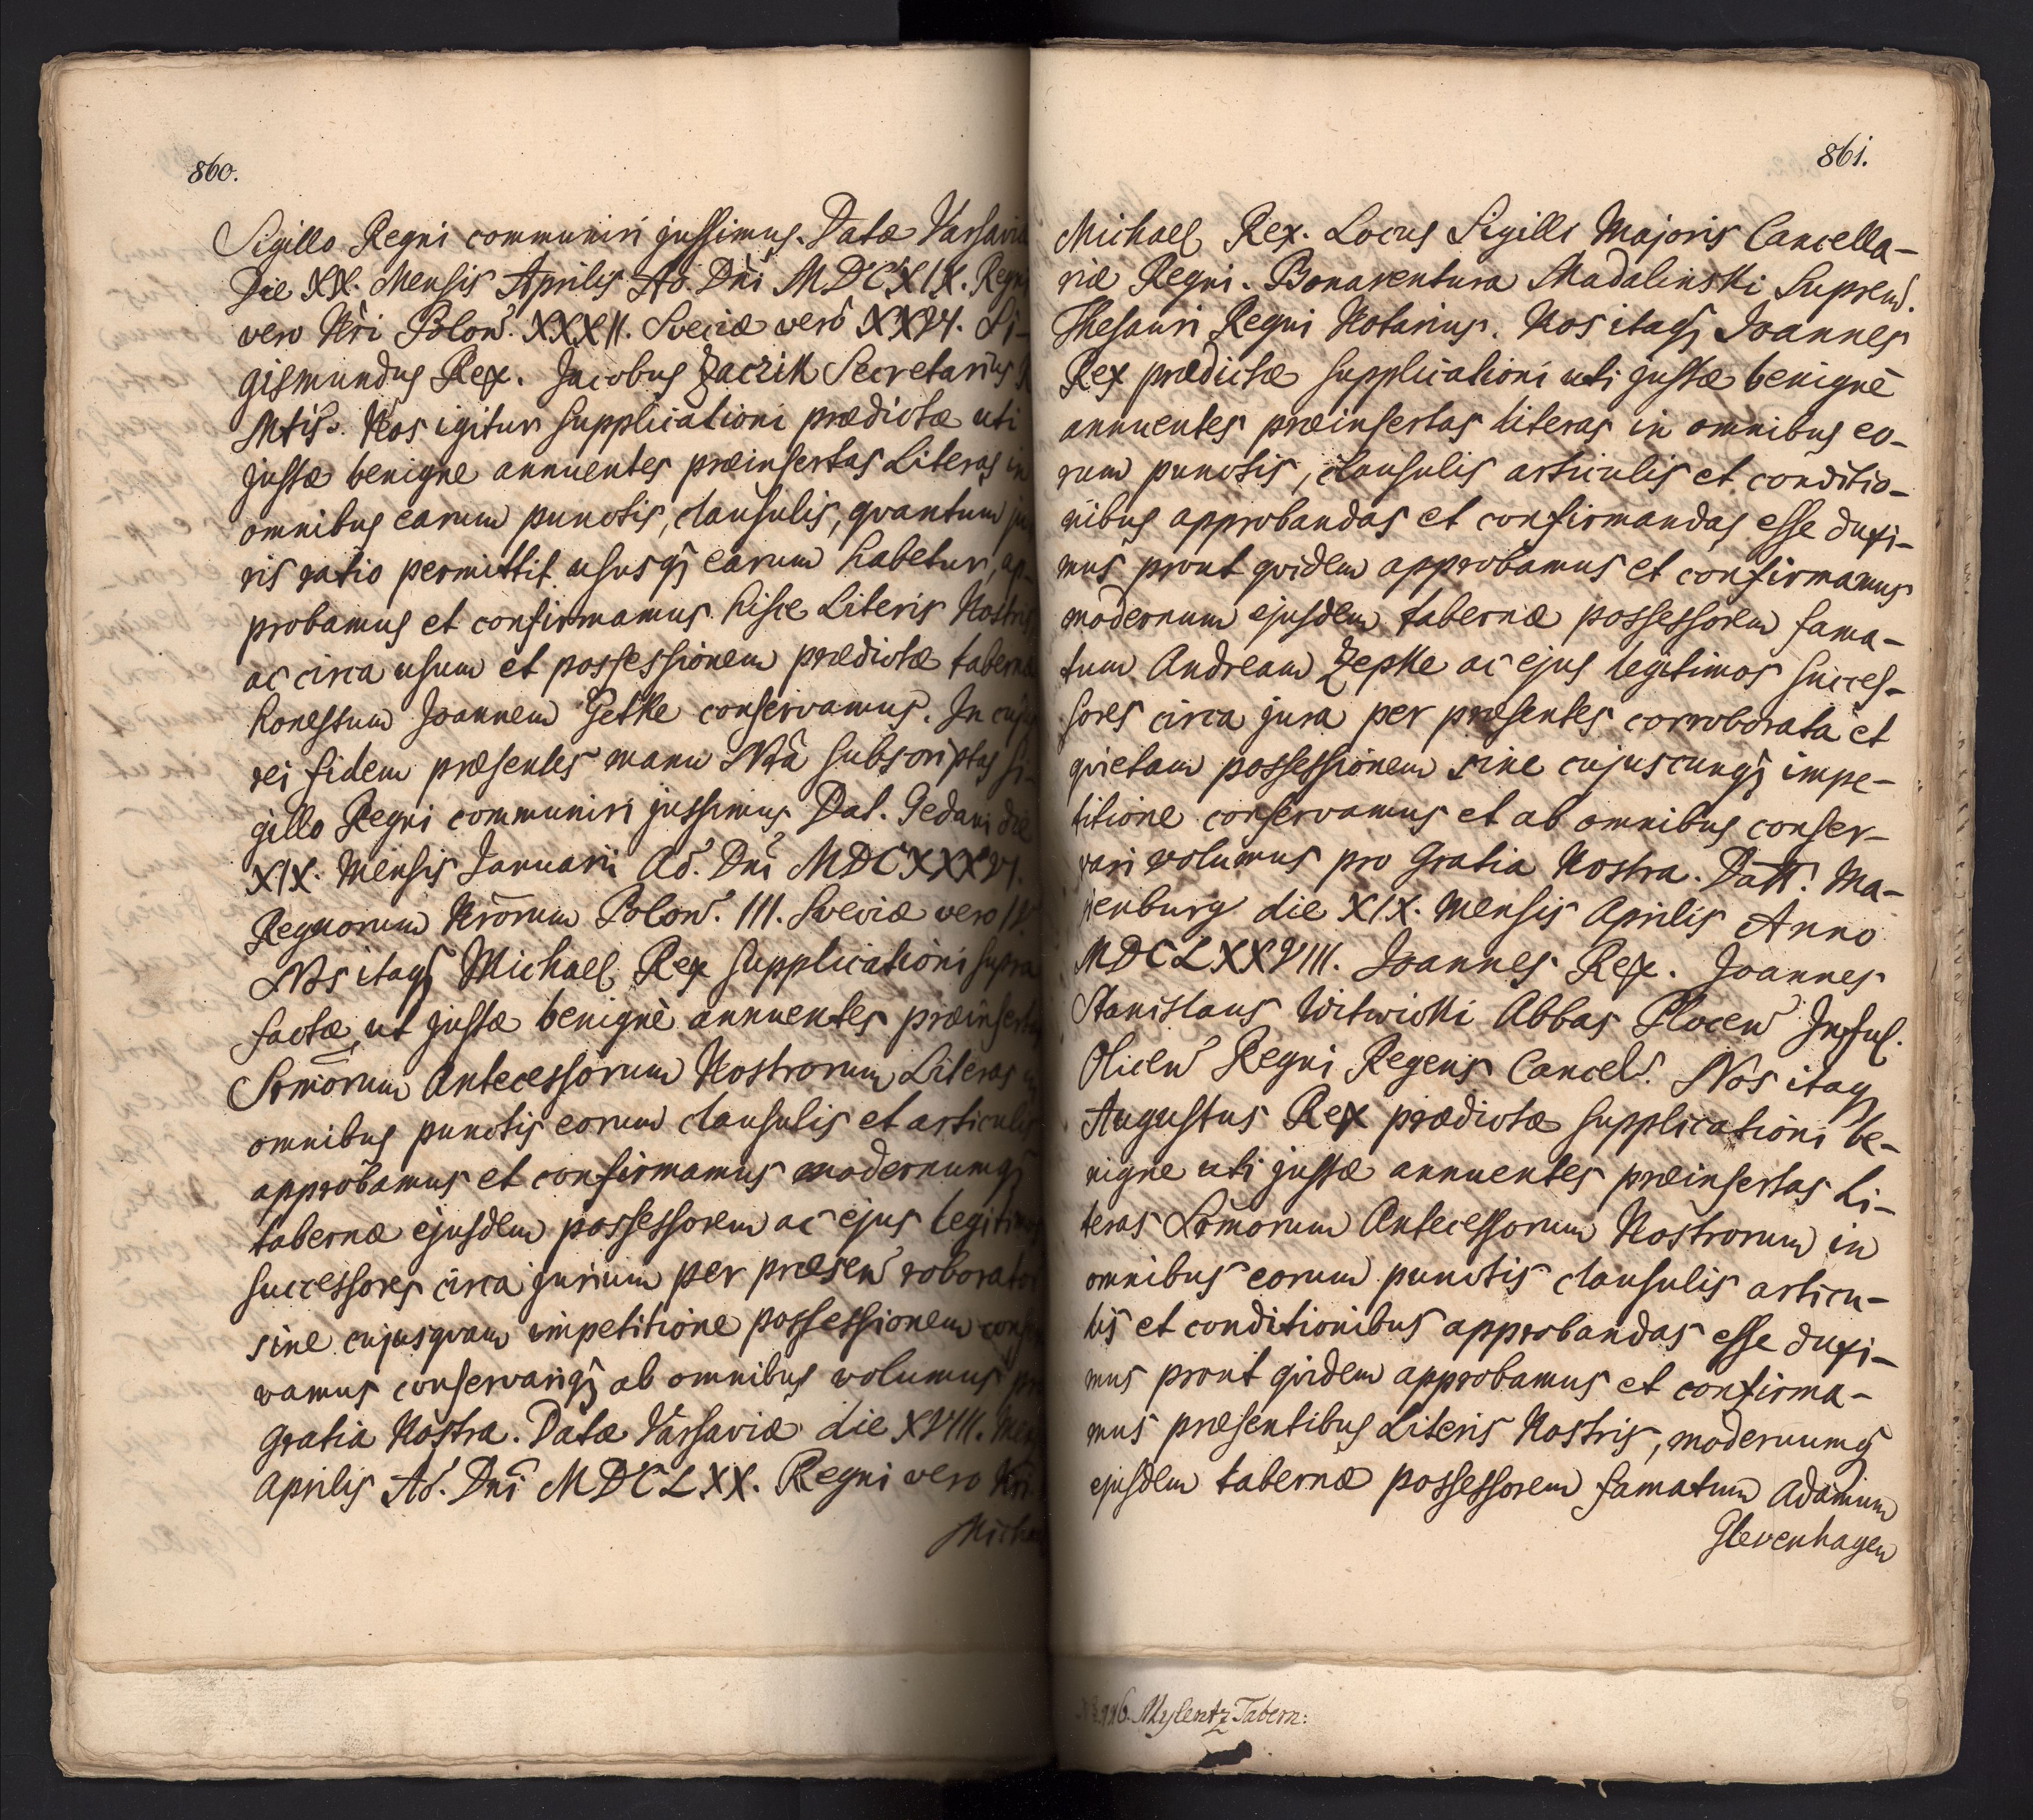 860.
Sigillo Regni communiri jussimus. Datæ Varsaviæ
Die XX. Mensis Aprilis Aõ. Dni MDCXIX. Regni
vero Nri Polon. XXXII. Sveciæ vero XXVI. Si-
gismundus Rex. Jacobus Zaczik Secretarius
Mtis. Nos igitur supplicationi prædictæ uti
justæ benigne annuentes præinsertas Literas in
omnibus earum punctis, clausulis, qvantum ju-
ris ratio permittit ususq earum habetur, ap-
probamus et confirmamus hisce Literis Nostris
ac circa usum et possessionem prædictæ tabernæ
honestum Joannem Getke conservamus. In cujus
rei fidem præsentes manu Nrâ subscriptas si-
gillo Regni communiri jussimus Dat. Gedani die
XIX. Mensis Januarii Aõ. Dni MDCXXXVI.
Regnorum Nrorum Polon. III. Sveciæ vero IV.
Nos itaq Michael Rex supplicationi supra
factæ, ut justæ benignè annuentes præinsertas
Srmorum Antecessorum Nostrorum Literas in
omnibus punctis eorum clausulis et articulis
approbamus et confirmamus modernumq
tabernæ ejusdem possessorem ac ejus legitimos
successores circa jurium per præsen roborator
sine cujusqvam impetitione possessionem conser-
vamus conservariq ab omnibus volumus pro
gratia Nostra. Datæ Varsaviæ die XVIII. Mens
Aprilis Aõ. Dni MDCLXX. Regni vero Nri.
Michael
861.
Michael Rex. Locus Sigilli Majoris Cancella-
riæ Regni. Bonaventura Madalinski Suprem.
Thesauri Regni Notarius. Nos itaq Joannes
Rex prædictæ supplicationi uti justæ benignè
annuentes præinsertas literas in omnibus eo-
rum punctis, clausulis articulis et conditio-
nibus approbandas et confirmandas esse duxi-
mus prout qvidem approbamus et confirmamus
modernum ejusdem tabernæ possessorem fama-
tum Andream Zepke ac ejus legitimos succes-
sores circa jura per præsentes corroborata et
qvietam possessionem sine cujuscunq impe-
titione conservamus et ab omnibus conser-
vari volumus pro Gratia Nostra. Datt. Ma-
rienburg die XIX. Mensis Aprilis Anno
MDCLXXVIII. Joannes Rex. Joannes
Stanislaus Witwicki Abbas Plocen Insul.
Olicen Regni Regens Cancel. Nos itaq
Augustus Rex prædictæ supplicationi be-
nigne uti justæ annuentes præinsertas Li-
teras Srmorum Antecessorum Nostrorum in
omnibus eorum punctis clausulis articu-
lis et conditionibus approbandas esse duxi-
mus prout qvidem approbamus et confirma-
mus præsentibus Literis Nostris, modernumq
ejusdem tabernæ possessorem famatum Adamum
Glevenhagen
Mylentz Tabern: